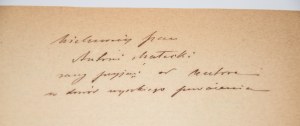 Wielmożny pan
Antoni Małecki
raczy przyjąć od Autora
w dowód wysokiego poważania